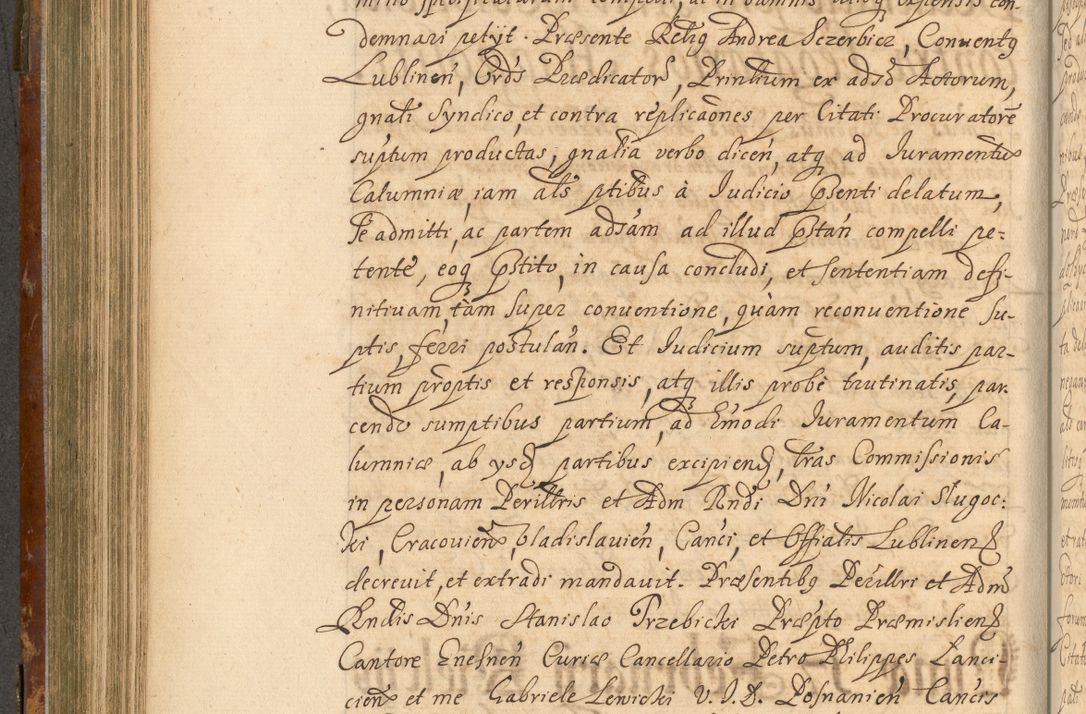 demnari petijt. Præsente Relig Andrea Sczerbicz, Conventq
Lublinen̄, Ord̄s Prædicator̄, Principium ex ads̄o Actorum,
gnāli Syndico, et contra replicãones per Citati Procuratorē
sup̄tum productas, gnālia verbo dicen̄, atq ad Iuramentū
Calumniæ, iam āls p̄tibus à Iudicio p̄senti delatum,
se admitti, ac partem ads̄am ad illud p̄stan̄ compelli pe-
tente, eoq p̄stito, in causa concludi, et sententiam defi-
nitivam, tam super conventione, quàm reconventione su-
p̄tis, ferri postulan̄. Et Iudicium sup̄tum, auditis par-
tium p̄roptis et responsis, atq illis probè trutinatis, par-
cendo sumptibus partium, ad h̄modi Iuramentum Ca-
lumniæ, ab ysd partibus excipiend, l̄ras Commissionis
in personam Perill̄ris et Adm̄ Rn̄di Dn̄i Nicolai Sługoc-
ki, Cracovien̄, Vladislavien̄, Can̄ci, et Offīatis Lublinen̄
decrevit, et extradi mandavit. Præsentibq Perill̄ri et Adm̄
Rn̄dis Dn̄is Stanislao Trzebicki Præp̄to Præmislien̄
Cantore Gnesnen̄ Curiæ Cancellario Petro Philippes Lanci-
cien̄ et me Gabriele Lewicki V. I. D. Posnanien̄ Can̄cis